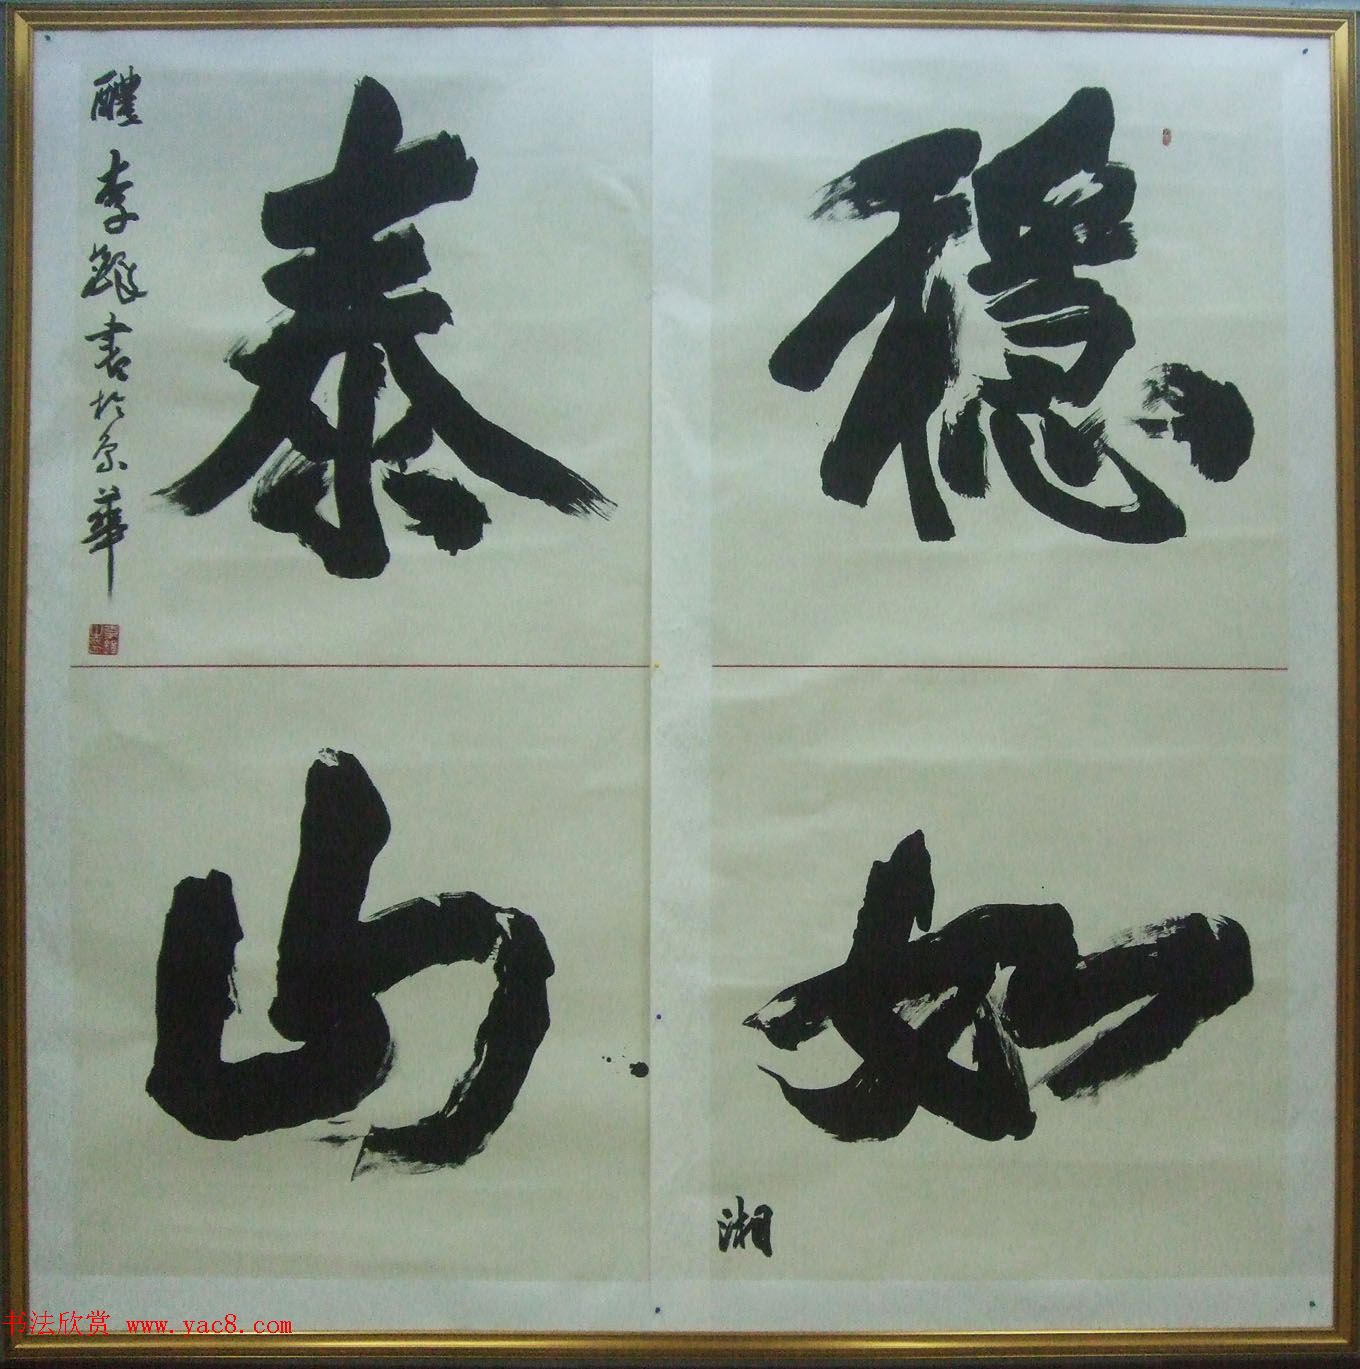 穩如
湘
泰山
醴李鐸書於京華
书法欣赏 www.yac8.com